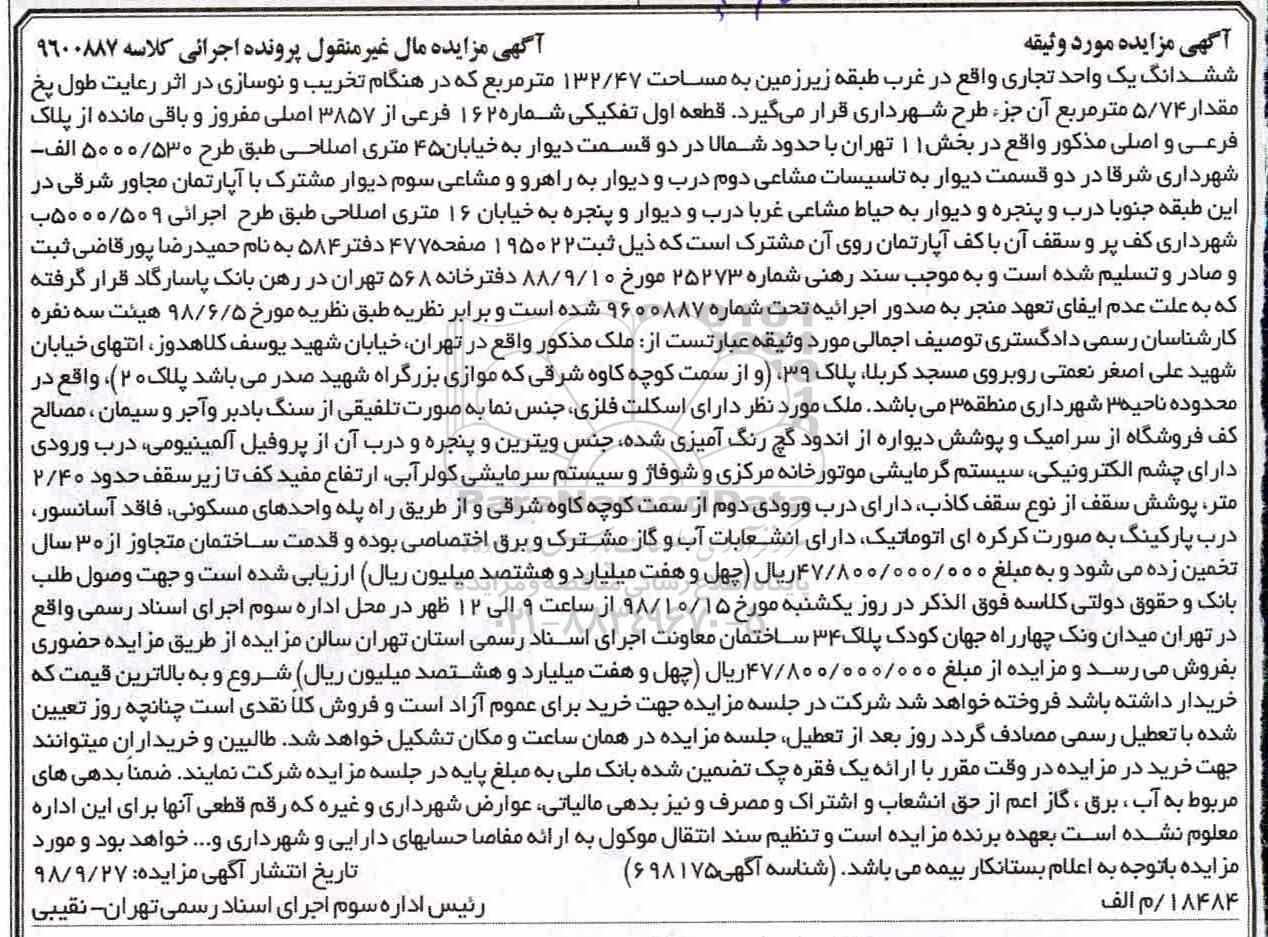 آگهی مزایده مورد وثیقه
آگهی مزایده مال غیرمنقول پرونده اجرائی کلاسه ۹۶۰۰۸۸۷
ششدانگ یک واحد تجاری واقع در غرب طبقه زیرزمین به مساحت ۱۳۲/۴۷ مترمربع که در هنگام تخریب و نوسازی در اثر رعایت طول پخ
مقدار۵/۷۴ مترمربع آن جزء طرح شهرداری قرار می‌گیرد. قطعه اول تفکیکی شماره۱۶۲ فرعی از ۳۸۵۷ اصلی مفروز و باقی مانده از پلاک
فرعی و اصلی مذکور واقع در بخش۱۱ تهران با حدود شمالا در دو قسمت دیوار به خیابان۴۵ متری اصلاحی طبق طرح ۵۰۰۰/۵۳۰ الف-
شهرداری شرقا در دو قسمت دیوار به تاسیسات مشاعی دوم درب و دیوار به راهرو و مشاعی سوم دیوار مشترک با آپارتمان مجاور شرقی در
این طبقه جنوبا درب و پنجره و دیوار به حیاط مشاعی غربا درب و دیوار و پنجره به خیابان ۱۶ متری اصلاحی طبق طرح اجرائی ۵۰۰۰/۵۰۹ب
شهرداری کف پر و سقف آن با کف آپارتمان روی آن مشترک است که ذیل ثبت۱۹۵۰۲۲ صفحه۴۷۷ دفتر۵۸۴ به نام حمیدرضا پورقاضی ثبت
و صادر و تسلیم شده است و به موجب سند رهنی شماره ۲۵۲۷۳ مورخ ۸۸/۹/۱۰ دفترخانه ۵۶۸ تهران در رهن بانک پاسارگاد قرار گرفته
که به علت عدم ایفای تعهد منجر به صدور اجرائیه تحت شماره ۹۶۰۰۸۸۷ شده است و برابر نظریه طبق نظریه مورخ ۹۸/۶/۵ هیئت سه نفره
کارشناسان رسمی دادگستری توصیف اجمالی مورد وثیقه عبارتست از: ملک مذکور واقع در تهران، خیابان شهید یوسف کلاهدوز، انتهای خیابان
شهید علی اصغر نعمتی روبروی مسجد کربلا، پلاک ۳۹، (و از سمت کوچه کاوه شرقی که موازی بزرگراه شهید صدر می باشد پلاک۲۰)، واقع در
محدوده ناحیه۳ شهرداری منطقه۳ می باشد. ملک مورد نظر دارای اسکلت فلزی، جنس نما به صورت تلفیقی از سنگ بادبر وآجر و سیمان ، مصالح
کف فروشگاه از سرامیک و پوشش دیواره از اندود گچ رنگ آمیزی شده، جنس ویترین و پنجره و درب آن از پروفیل آلمینیومی، درب ورودی
دارای چشم الکترونیکی، سیستم گرمایشی موتورخانه مرکزی و شوفاژ و سیستم سرمایشی کولرآبی، ارتفاع مفید کف تا زیرسقف حدود ۲/۴۰
متر، پوشش سقف از نوع سقف کاذب، دارای درب ورودی دوم از سمت کوچه کاوه شرقی و از طریق راه پله واحدهای مسکونی، فاقد آسانسور،
درب پارکینگ به صورت کرکره ای اتوماتیک، دارای انشعابات آب و گاز مشترک و برق اختصاصی بوده و قدمت ساختمان متجاوز از ۳۰ سال
تخمین زده می شود و به مبلغ ۴۷/۸۰۰/۰۰۰/۰۰۰ریال (چهل و هفت میلیارد و هشتصد میلیون ریال) ارزیابی شده است و جهت وصول طلب
بانک و حقوق دولتی کلاسه فوق الذکر در روز یکشنبه مورخ ۹۸/۱۰/۱۵ از ساعت ۹ الی ۱۲ ظهر در محل اداره سوم اجرای اسناد رسمی واقع
در تهران میدان ونک چهارراه جهان کودک پلاک۳۴ ساختمان معاونت اجرای اسناد رسمی استان تهران سالن مزایده از طریق مزایده حضوری
بفروش می رسد و مزایده از مبلغ ۴۷/۸۰۰/۰۰۰/۰۰۰ریال (چهل و هفت میلیارد و هشتصد میلیون ریال) شروع و به بالاترین قیمت که
خریدار داشته باشد فروخته خواهد شد شرکت در جلسه مزایده جهت خرید برای عموم آزاد است و فروش کلاً نقدی است چنانچه روز تعیین
شده با تعطیل رسمی مصادف گردد روز بعد از تعطیل، جلسه مزایده در همان ساعت و مکان تشکیل خواهد شد. طالبین و خریداران میتوانند
جهت خرید در مزایده در وقت مقرر با ارائه یک فقره چک تضمین شده بانک ملی به مبلغ پایه در جلسه مزایده شرکت نمایند. ضمناً بدهی های
مربوط به آب ، برق ، گاز اعم از حق انشعاب و اشتراک و مصرف و نیز بدهی مالیاتی، عوارض شهرداری و غیره که رقم قطعی آنها برای این اداره
معلوم نشده است بعهده برنده مزایده است و تنظیم سند انتقال موکول به ارائه مفاصا حسابهای دارایی و شهرداری و... خواهد بود و مورد
مزایده باتوجه به اعلام بستانکار بیمه می باشد. (شناسه آگهی۶۹۸۱۷۵) تاریخ انتشار آگهی مزایده: ۹۸/۹/۲۷
۱۸۴۸۴/م الف رئیس اداره سوم اجرای اسناد رسمی تهران- نقیبی
ParsNamadData
پایگاه اطلاع رسانی مناقصه و مزایده
۰۲۱-۸۸۳۴۹۶۷۰-۵